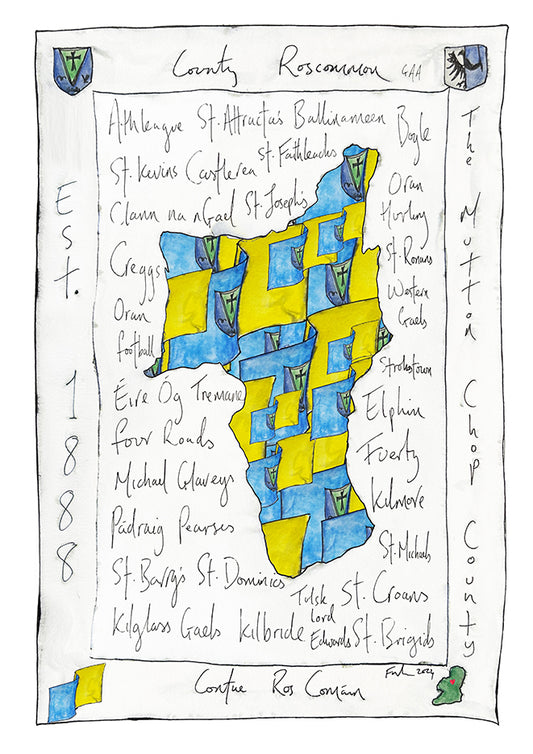 County Roscommon GAA
Est. 1888
Athleague St. Attracta's Ballinameen Boyle
St. Kevins Castlerea St. Faithleachs
Clann na nGael St. Joseph's
Oran
Hurling
Creggs
St. Ronans
Oran
football
Western
Gaels
Strokestown
Éire Óg Tremane
Elphin
Four Roads
Fuerty
Michael Glaveys
Kilmore
Pádraig Pearses
St. Michaels
St. Barry's St. Dominics
Tulsk
Lord
Edwards
St. Croans
Kilglass Gaels Kilbride
St. Brigids
The Mutton Chop County
2024
Contae Ros Comáin